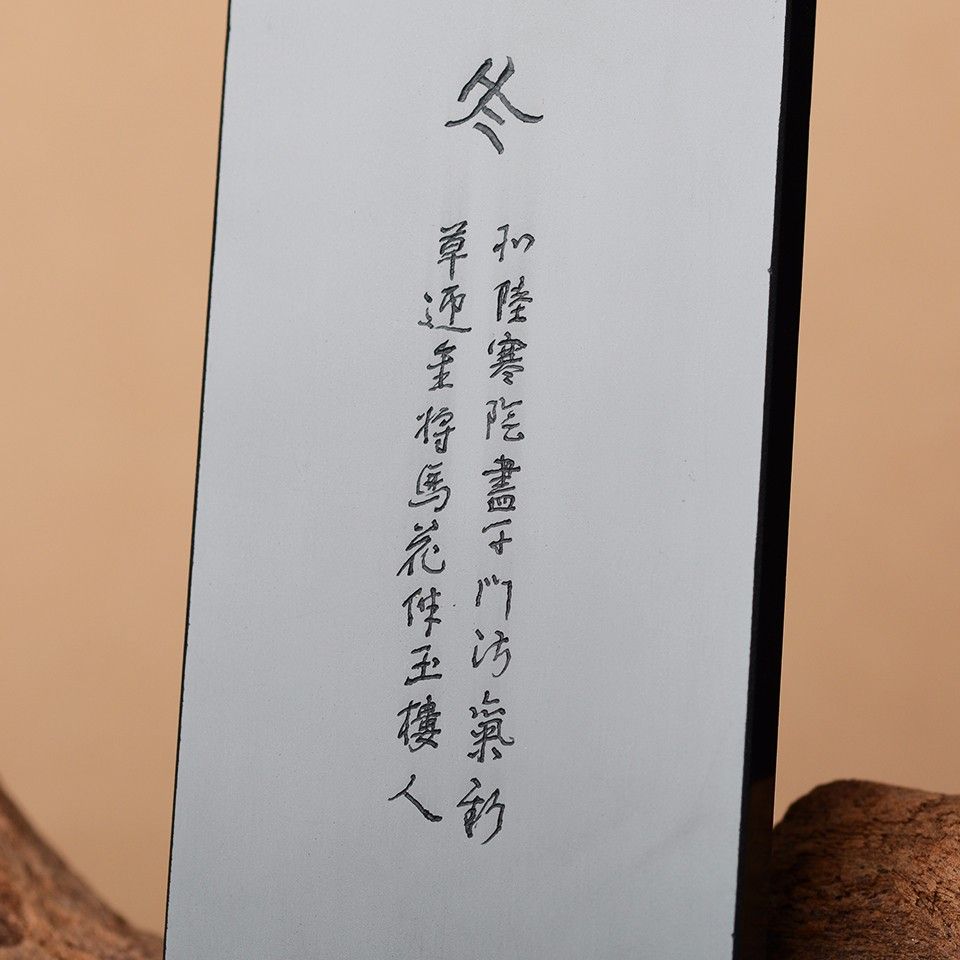 冬
陸寒陰盡千門淑氣新
草迎金埒馬花伴玉樓人